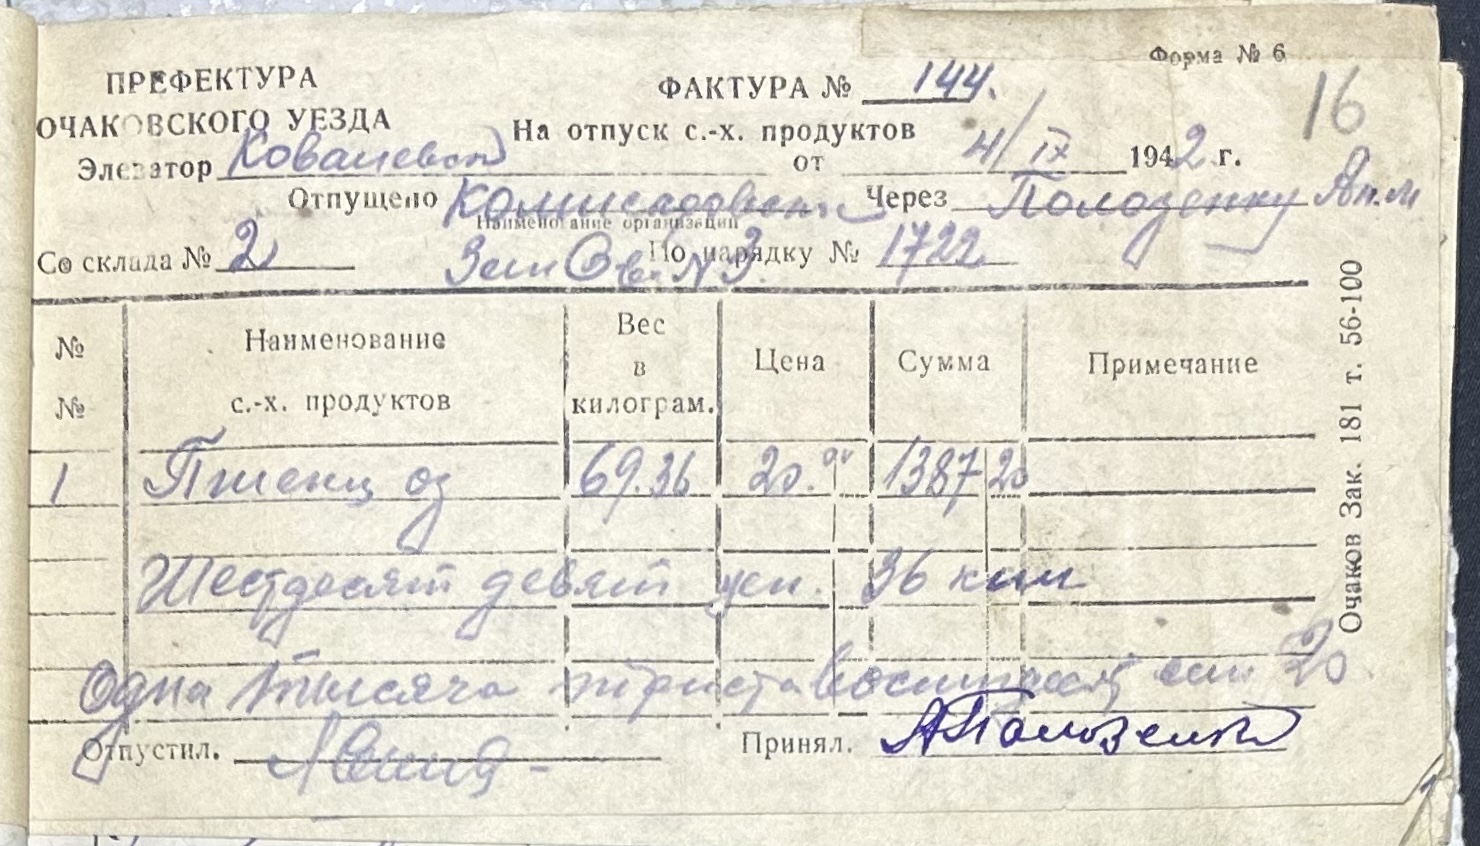 Форма № 6
16
ПРЕФЕКТУРА
ОЧАКОВСКОГО УЕЗДА
ФАКТУРА № 144.
На отпуск с.-х. продуктов
Элеватор Ковалевск от 4/IX 1942 г.
Отпущено Комисаровск Через Полозенку Ап.м
Наименование организации
Со склада № 2 По нарядку № 1722
Зем №3.
№ № Наименование с.-х. продуктов Вес в килограм. Цена Сумма Примечание
1 Пшениц оз 69.36 20.00 1387 20
Шестдесят девят цен. 36 кил
Одна тысяча триста восимдесят сем 20
Отпустил. Принял. А Полозенко
Очаков Зак. 181 т. 56-100